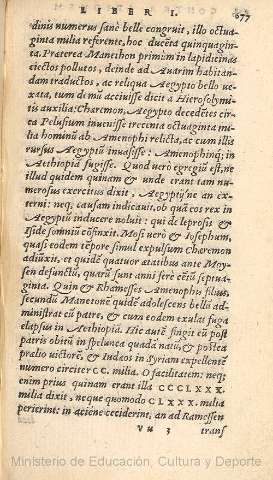 LIBER I. 677
dinis numerus sanè belle congruit, illo octua-
ginta milia referente, hoc ducẽta quinquagin-
ta. Præterea Manethon primum in lapidicinas
eiectos pollutos, deinde ad Auarim habitan-
dam traductos, ac reliqua Aegypto bello ue-
xata, tum demũ acciuisse dicit à Hierosolymi-
tis auxilia: Chæremon, Aegypto decedẽtes cir-
ca Pelusium inuenisse trecenta octuaginta mi-
lia hominũ ab Amenophi relicta, ac cum illis
rursus Aegyptũ inuasisse: Amenophinq; in
Aethiopiã fugisse. Quod uerò egregiũ est, ne
illud quidem quinam & unde erant tam nu-
merosus exercitus dixit, Aegyptij ne an ex-
terni: neq; causam indicauit, ob quã eos rex in
Aegyptũ inducere noluit: qui de leprosis &
Iside somniũ cõfinxit. Mosi uerò & Iosephum,
quasi eodem tẽpore simul expulsum Chæremon
adiũxit, et quidẽ quatuor ætatibus ante Moy-
sen defunctũ, quarũ sunt anni ferè cẽtũ septua-
ginta. Quin & Rhamesses Amenophis filius,
secundũ Manetonẽ quidẽ adolescens bellũ ad-
ministrat cũ patre, & cum eodem exulat fuga
elapsus in Aethiopiã. Hic autẽ fingit eũ post
patris obitũ in spelunca quadã natũ, & postea
prælio uictorẽ, & Iudæos in Syriam expellentẽ
numero circiter CC. milia. O facilitatem: neq;
enim prius quinam erant illa CCCLXXX.
milia dixit, neque quomodo CLXXX. milia
perierint: in acione ceciderint, an ad Ramessen
Vu 3 transf
Ministerio de Educación, Cultura y Deporte